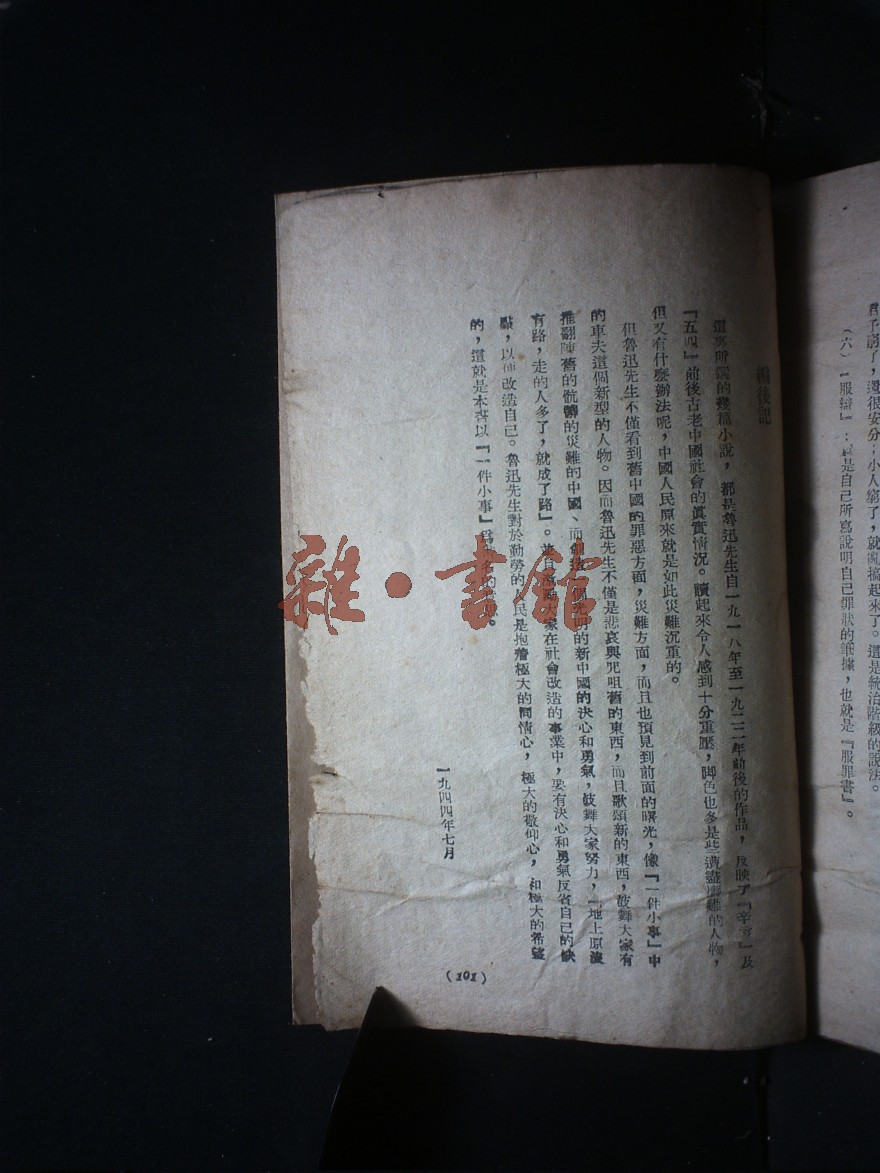 君子窮了，還很安分；小人窮了，就亂搞起來了。這是統治階級的說法。
（六）『服辯』：就是自己所寫說明自己罪狀的筆據，也就是『服罪書』。
編後記
這裏所選的幾篇小說，都是魯迅先生自一九一八年至一九二二年前後的作品，反映了『辛亥』及
『五四』前後古老中國社會的眞實情況。讀起來令人感到十分重壓，脚色也多是些遭盡磨難的人物，
但又有什麼辦法呢，中國人民原來就是如此災難沉重的。
但魯迅先生不僅看到舊中國的罪惡方面，災難方面，而且也預見到前面的曙光，像『一件小事』中
的車夫這個新型的人物。因而魯迅先生不僅是悲哀與咒咀舊的東西，而且歌頌新的東西，鼓舞大家有
推翻陳舊的骯髒的災難的中國、而創造一個光明的新中國的決心和勇氣，鼓舞大家努力，『地上原沒
有路，走的人多了，就成了路』。並且鼓勵大家在社會改造的事業中，要有決心和勇氣反省自己的缺
點，以便改造自己。魯迅先生對於勤勞的人民是抱着極大的同情心，極大的敬仰心，和極大的希望
的，這就是本書以『一件小事』爲名的意思。
一九四四年七月
(101)
雜·書館